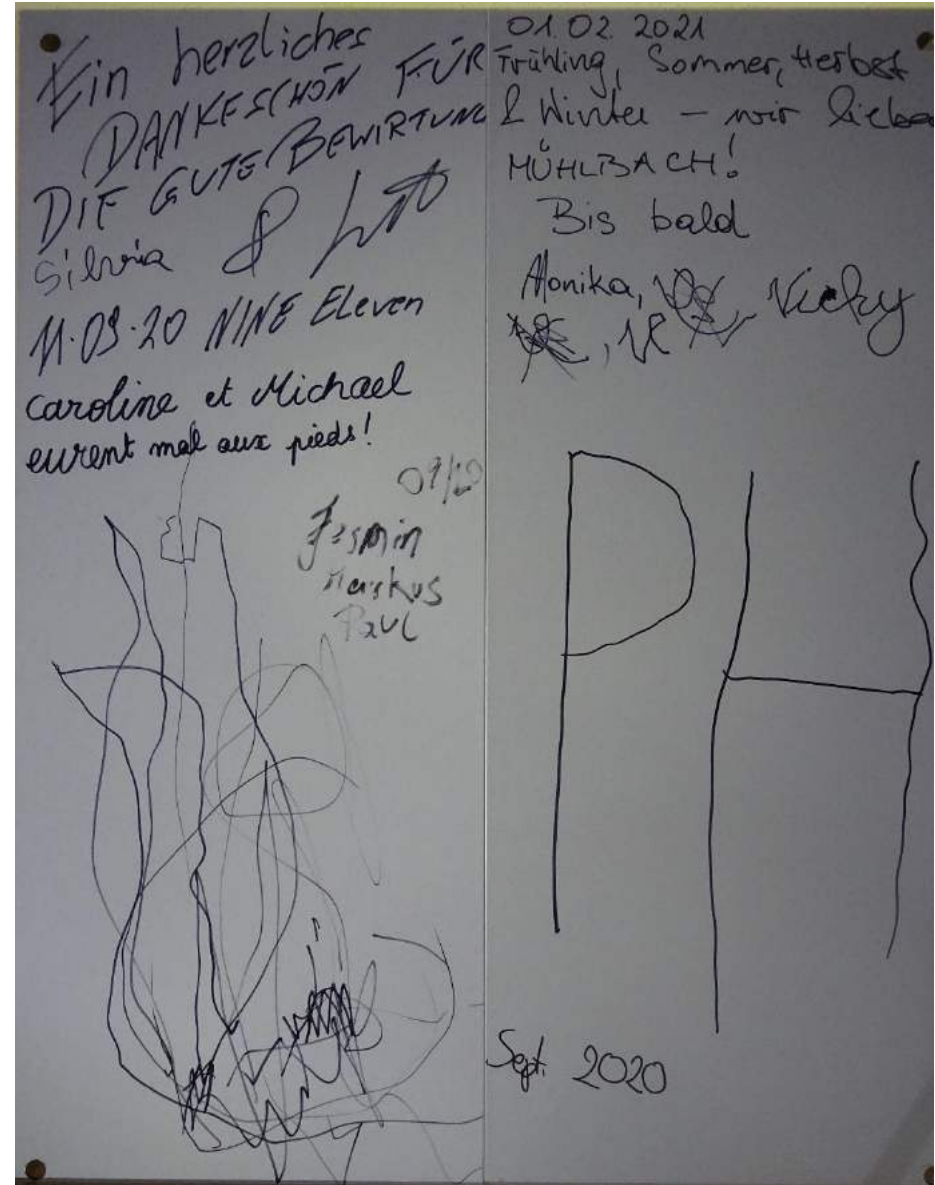 Ein herzliches
DANKESCHÖN FÜR
DIE GUTE BEWIRTUNG
Silvia &
11.09.20 NINE Eleven
Caroline et Michael
eurent mal aux pieds!
09/20
Jasmin
Markus
Paul
01.02.2021
Frühling, Sommer, Herbst
& Winter – wir lieben
MÜHLBACH!
Bis bald
Monika, Vicky
PH
Sept. 2020